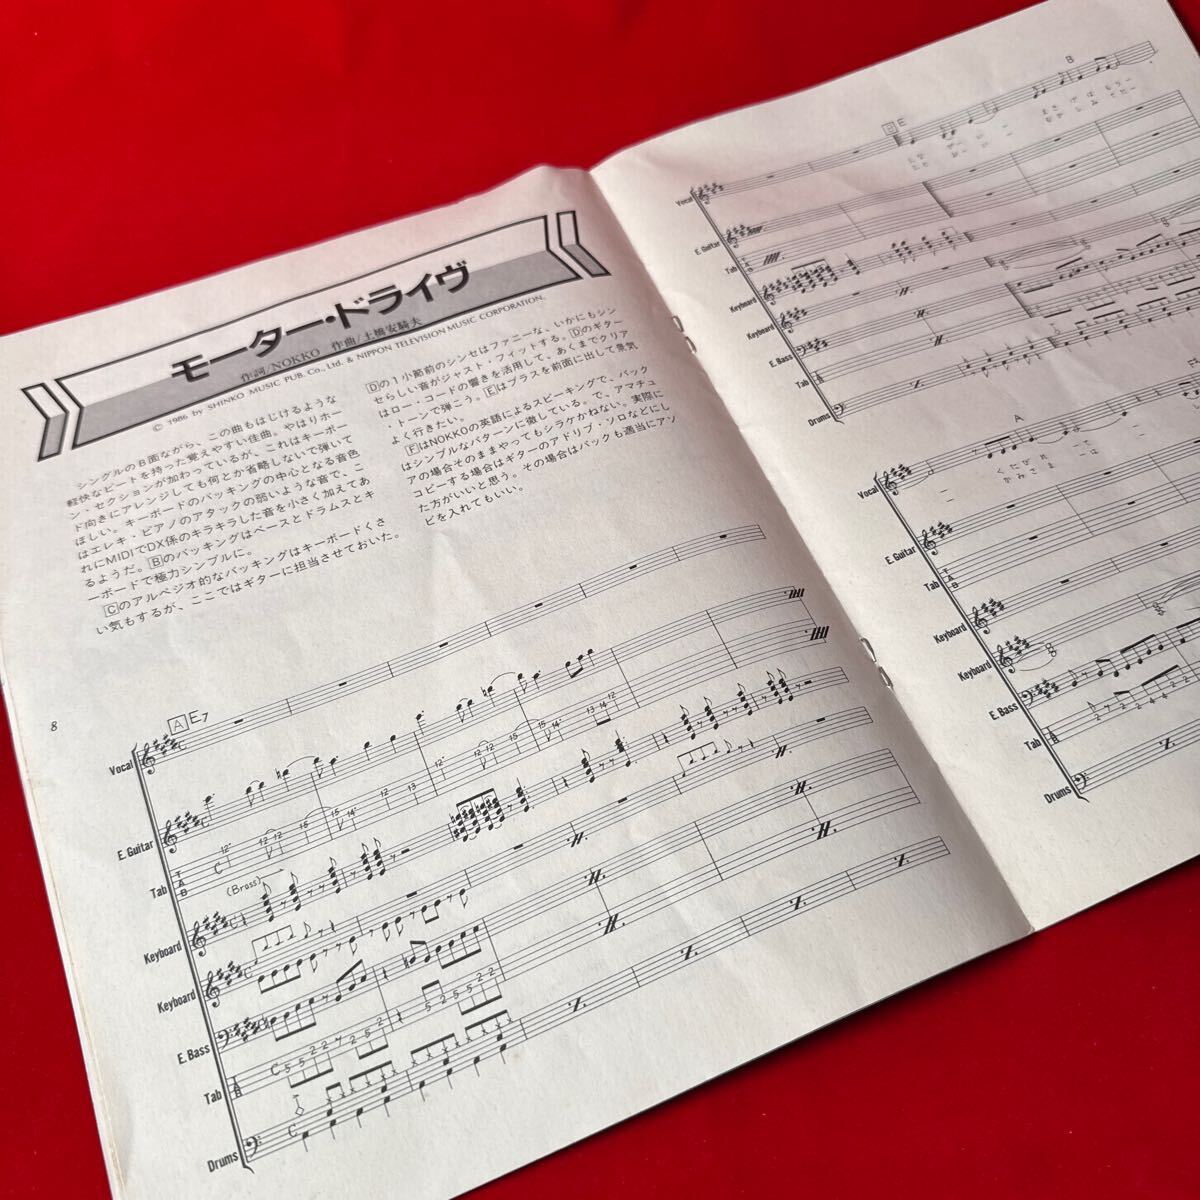 モーター・ドライヴ
作詞/NOKKO 作曲/土橋安騎夫
© 1986 by SHINKO MUSIC PUB. Co., Ltd. & NIPPON TELEVISION MUSIC CORPORATION.
シングルのB面ながら、この曲もはじけるような
軽快なビートを持った覚えやすい佳曲。やはりホー
ン・セクションが加わっているが、これはキーボー
ド向きにアレンジしても何とか省略しないで弾いて
ほしい。キーボードのバッキングの中心となる音色
はエレキ・ピアノのアタックの弱いような音で、こ
れにMIDIでDX係のキラキラした音を小さく加えてあ
るようだ。Bのバッキングはベースとドラムスとキ
ーボードで極力シンプルに。
Cのアルペジオ的なバッキングはキーボードくさ
い気もするが、ここではギターに担当させておいた。
Dの1小節前のシンセはファニーな、いかにもシン
セらしい音がジャスト・フィットする。Dのギター
はロー・コードの響きを活用して、あくまでクリア
・トーンで弾こう。Eはブラスを前面に出して景気
よく行きたい。
FはNOKKOの英語によるスピーキングで、バック
はシンプルなパターンに徹している。で、アマチュ
アの場合そのままやってもシラケかねない。実際に
コピーする場合はギターのアドリブ・ソロなどにし
た方がいいと思う。その場合はバックも適当にアソ
ビを入れてもいい。
8
A E7
Vocal
E. Guitar
Tab
(Brass)
Keyboard
Keyboard
E. Bass
Tab
Drums
E
B
Vocal
E. Guitar
Tab
Keyboard
Keyboard
E. Bass
Tab
Drums
A
くたびれ
かみさま
Vocal
E. Guitar
Tab
Keyboard
Keyboard
E. Bass
Tab
Drums